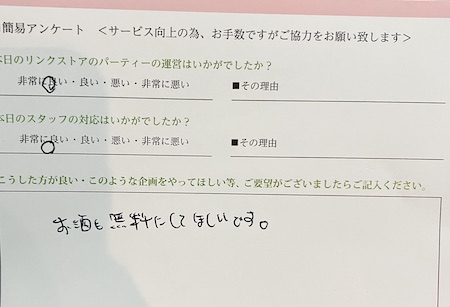 簡易アンケート <サービス向上の為、お手数ですがご協力をお願い致します>
本日のリンクストアのパーティーの運営はいかがでしたか?
非常に良い・良い・悪い・非常に悪い ■その理由
本日のスタッフの対応はいかがでしたか?
非常に良い・良い・悪い・非常に悪い ■その理由
こうした方が良い・このような企画をやってほしい等、ご要望がございましたらご記入ください。
お酒も無料にしてほしいです。